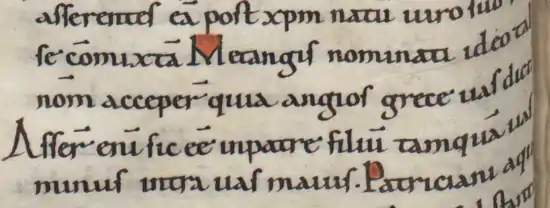 asserentes eā post xpm natū uiro suo
se cōmixtā Metangis nominati ideo tal
nōm acceper̄ quia angios grece uas dict
Asser̄ eni̅ sic eē inpatre filiū tamquā uas
minus intra uas maius. Patriciani aqu